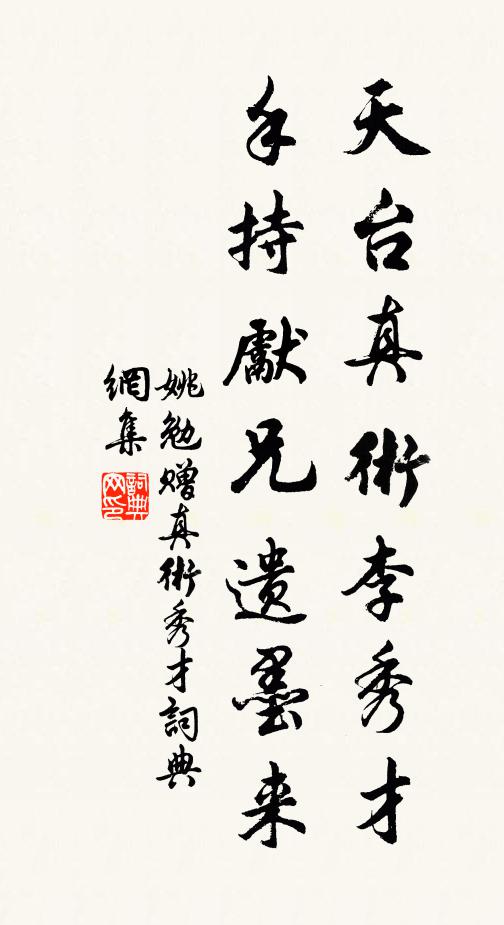 天台真術李秀才
手持獻兄遺墨来
姚勉贈真術秀才詞典
網集
詞典
网印